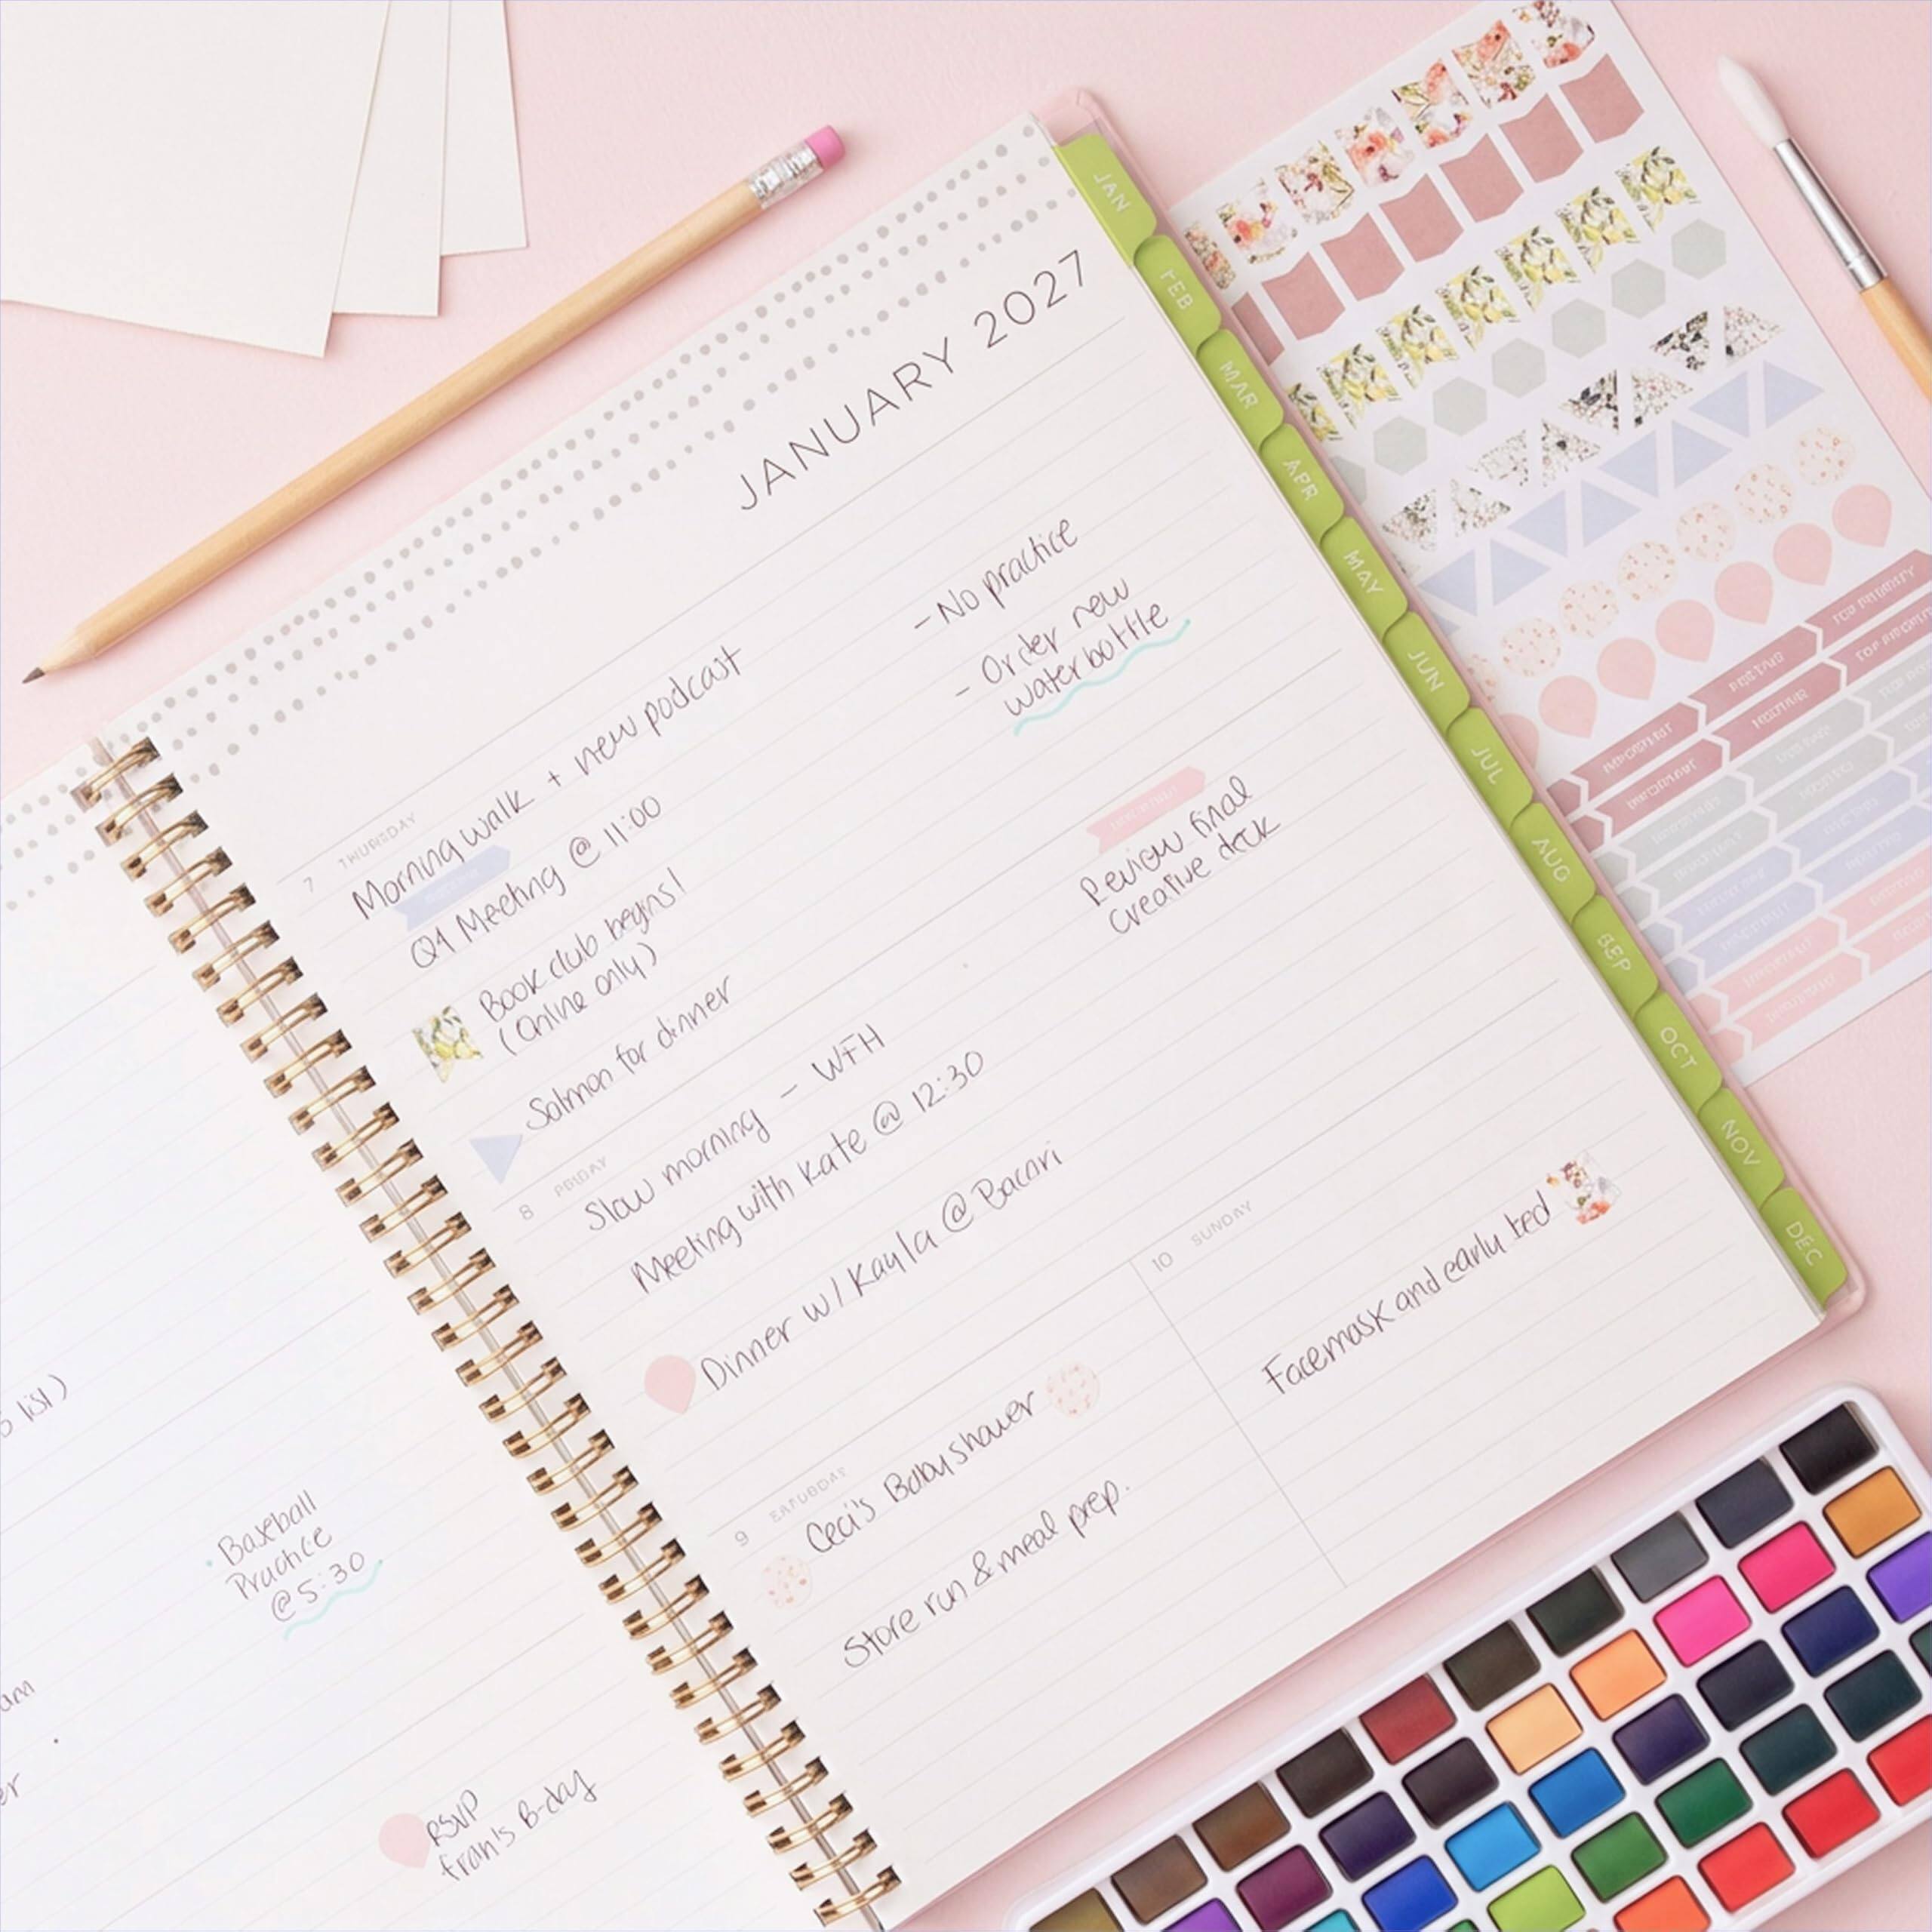 JANUARY 2027
7 THURSDAY
Morning walk + new podcast
Q4 Meeting @ 11:00
Book club begins!
(Online only)
Salmon for dinner
- No practice
- Order new
water bottle
8 FRIDAY
Slow morning - WFH
Meeting with Kate @ 12:30
Dinner w/ Kayla @ Bacari
Review final
Creative deck
9
Ceci's Baby shower
Store run & meal prep.
10 SUNDAY
Facemask and early bed
list)
Baseball
Practice
@ 5:30
RSVP
Fran's B-day
JAN
FEB
MAR
APR
MAY
JUN
JUL
AUG
SEP
OCT
NOV
DEC